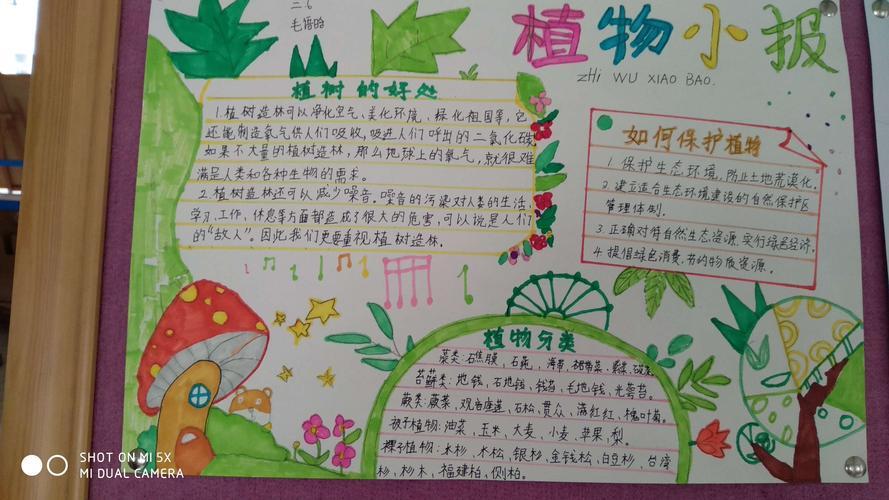 二.6
毛语晗
植物小报
ZHI WU XIAO BAO.
植树的好处
1.植树造林可以净化空气、美化环境、绿化祖国等,它
还能制造氧气供人们吸收,吸进人们呼出的二氧化碳,
如果不大量的植树造林,那么地球上的氧气,就很难
满足人类和各种生物的需求。
2.植树造林还可以减少噪音。噪音的污染对人类的生活、
学习、工作、休息等方面都造成了很大的危害,可以说是人们
的“敌人”。因此我们更要重视植树造林。
如何保护植物
1.保护生态环境,防止土地荒漠化.
2.建立适合生态环境建设的自然保护区
管理体制.
3.正确对待自然生态资源,实行绿色经济.
4.提倡绿色消费,节约物质资源.
植物分类
菜类:石膜、海带、紫菜、
苔藓类:地钱、石地钱、钱苔、毛地钱、光萼苔。
蕨类:蕨菜、观音座莲、石松、贯众、满江红、槐叶萍。
被子植物:油菜、玉米、大麦、小麦、苹果、梨。
裸子植物:水杉、水松、银杉、金钱松、白豆杉、台湾
杉、杉木、福建柏、侧柏。
SHOT ON MI 5X
MI DUAL CAMERA